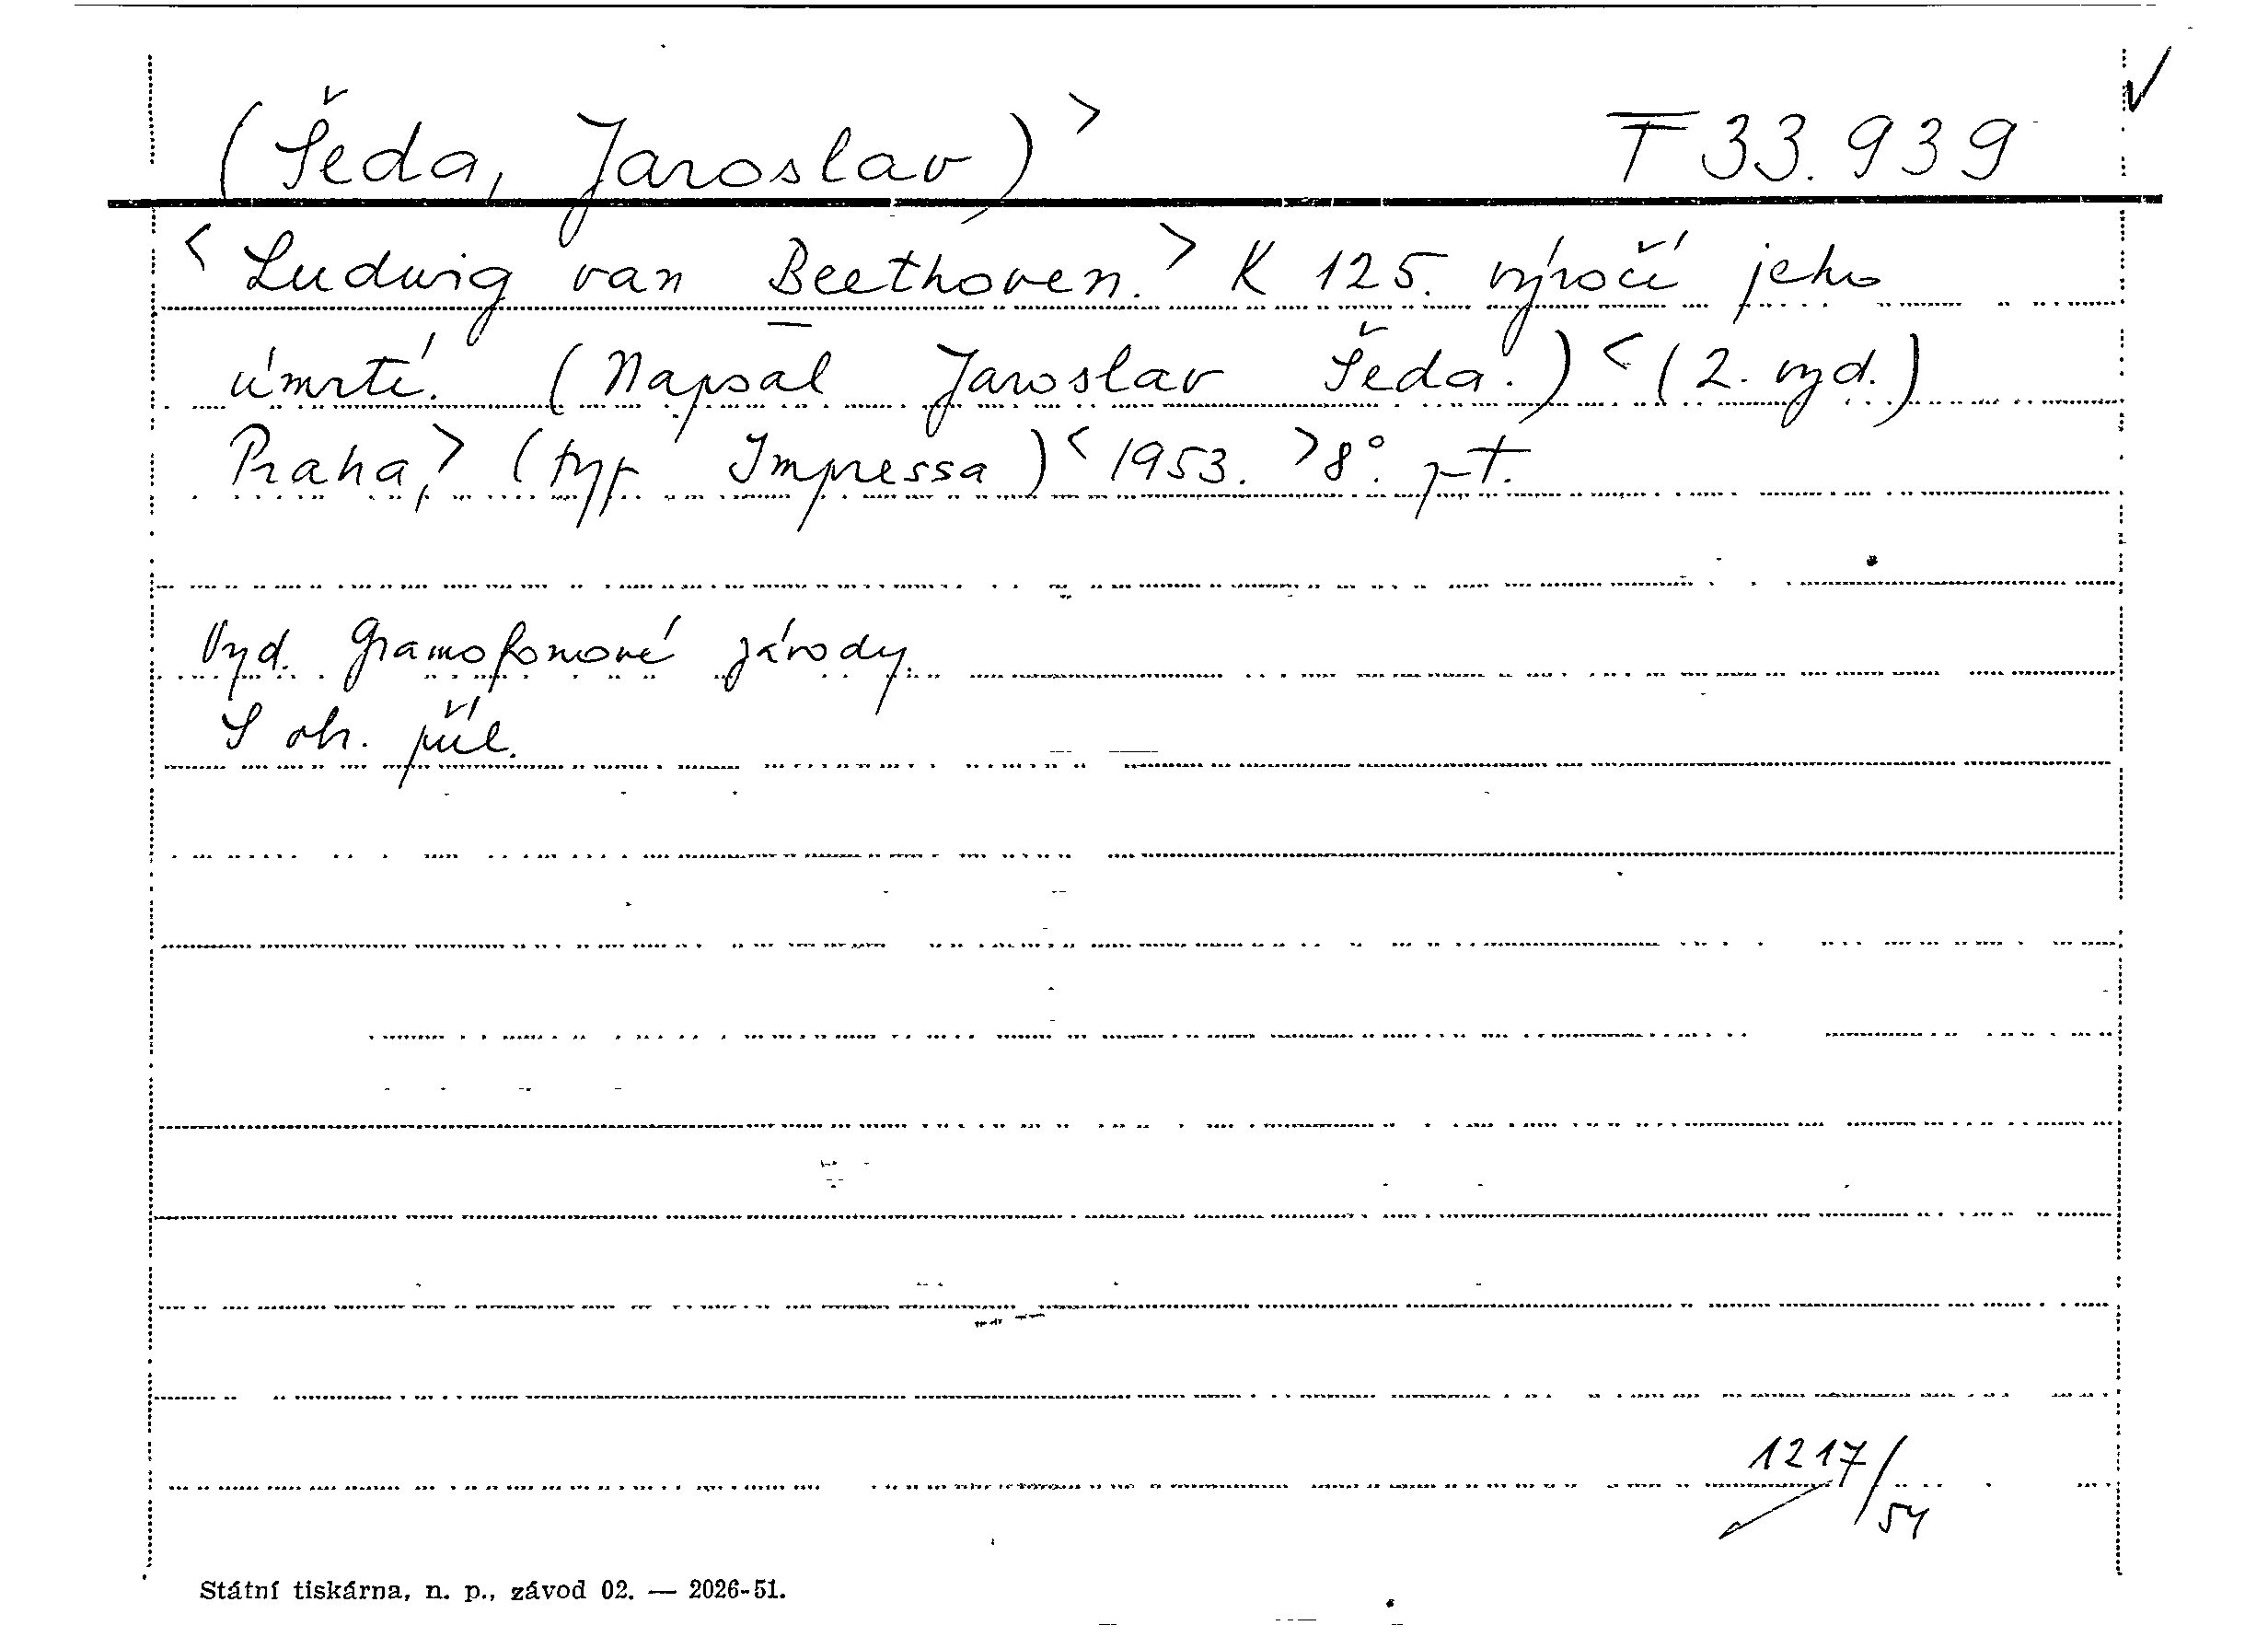 (Šeda, Jaroslav)> F 33.939
<Ludwig van Beethoven.> K 125. výročí jeho
úmrtí. (Napsal Jaroslav Šeda.)<(2. vyd.)
Praha,> (typ Impressa)<1953. >8°.
Vyd. Gramofonové závody.
S obr. příl.
1217/54
Státní tiskárna, n. p., závod 02. — 2026-51.